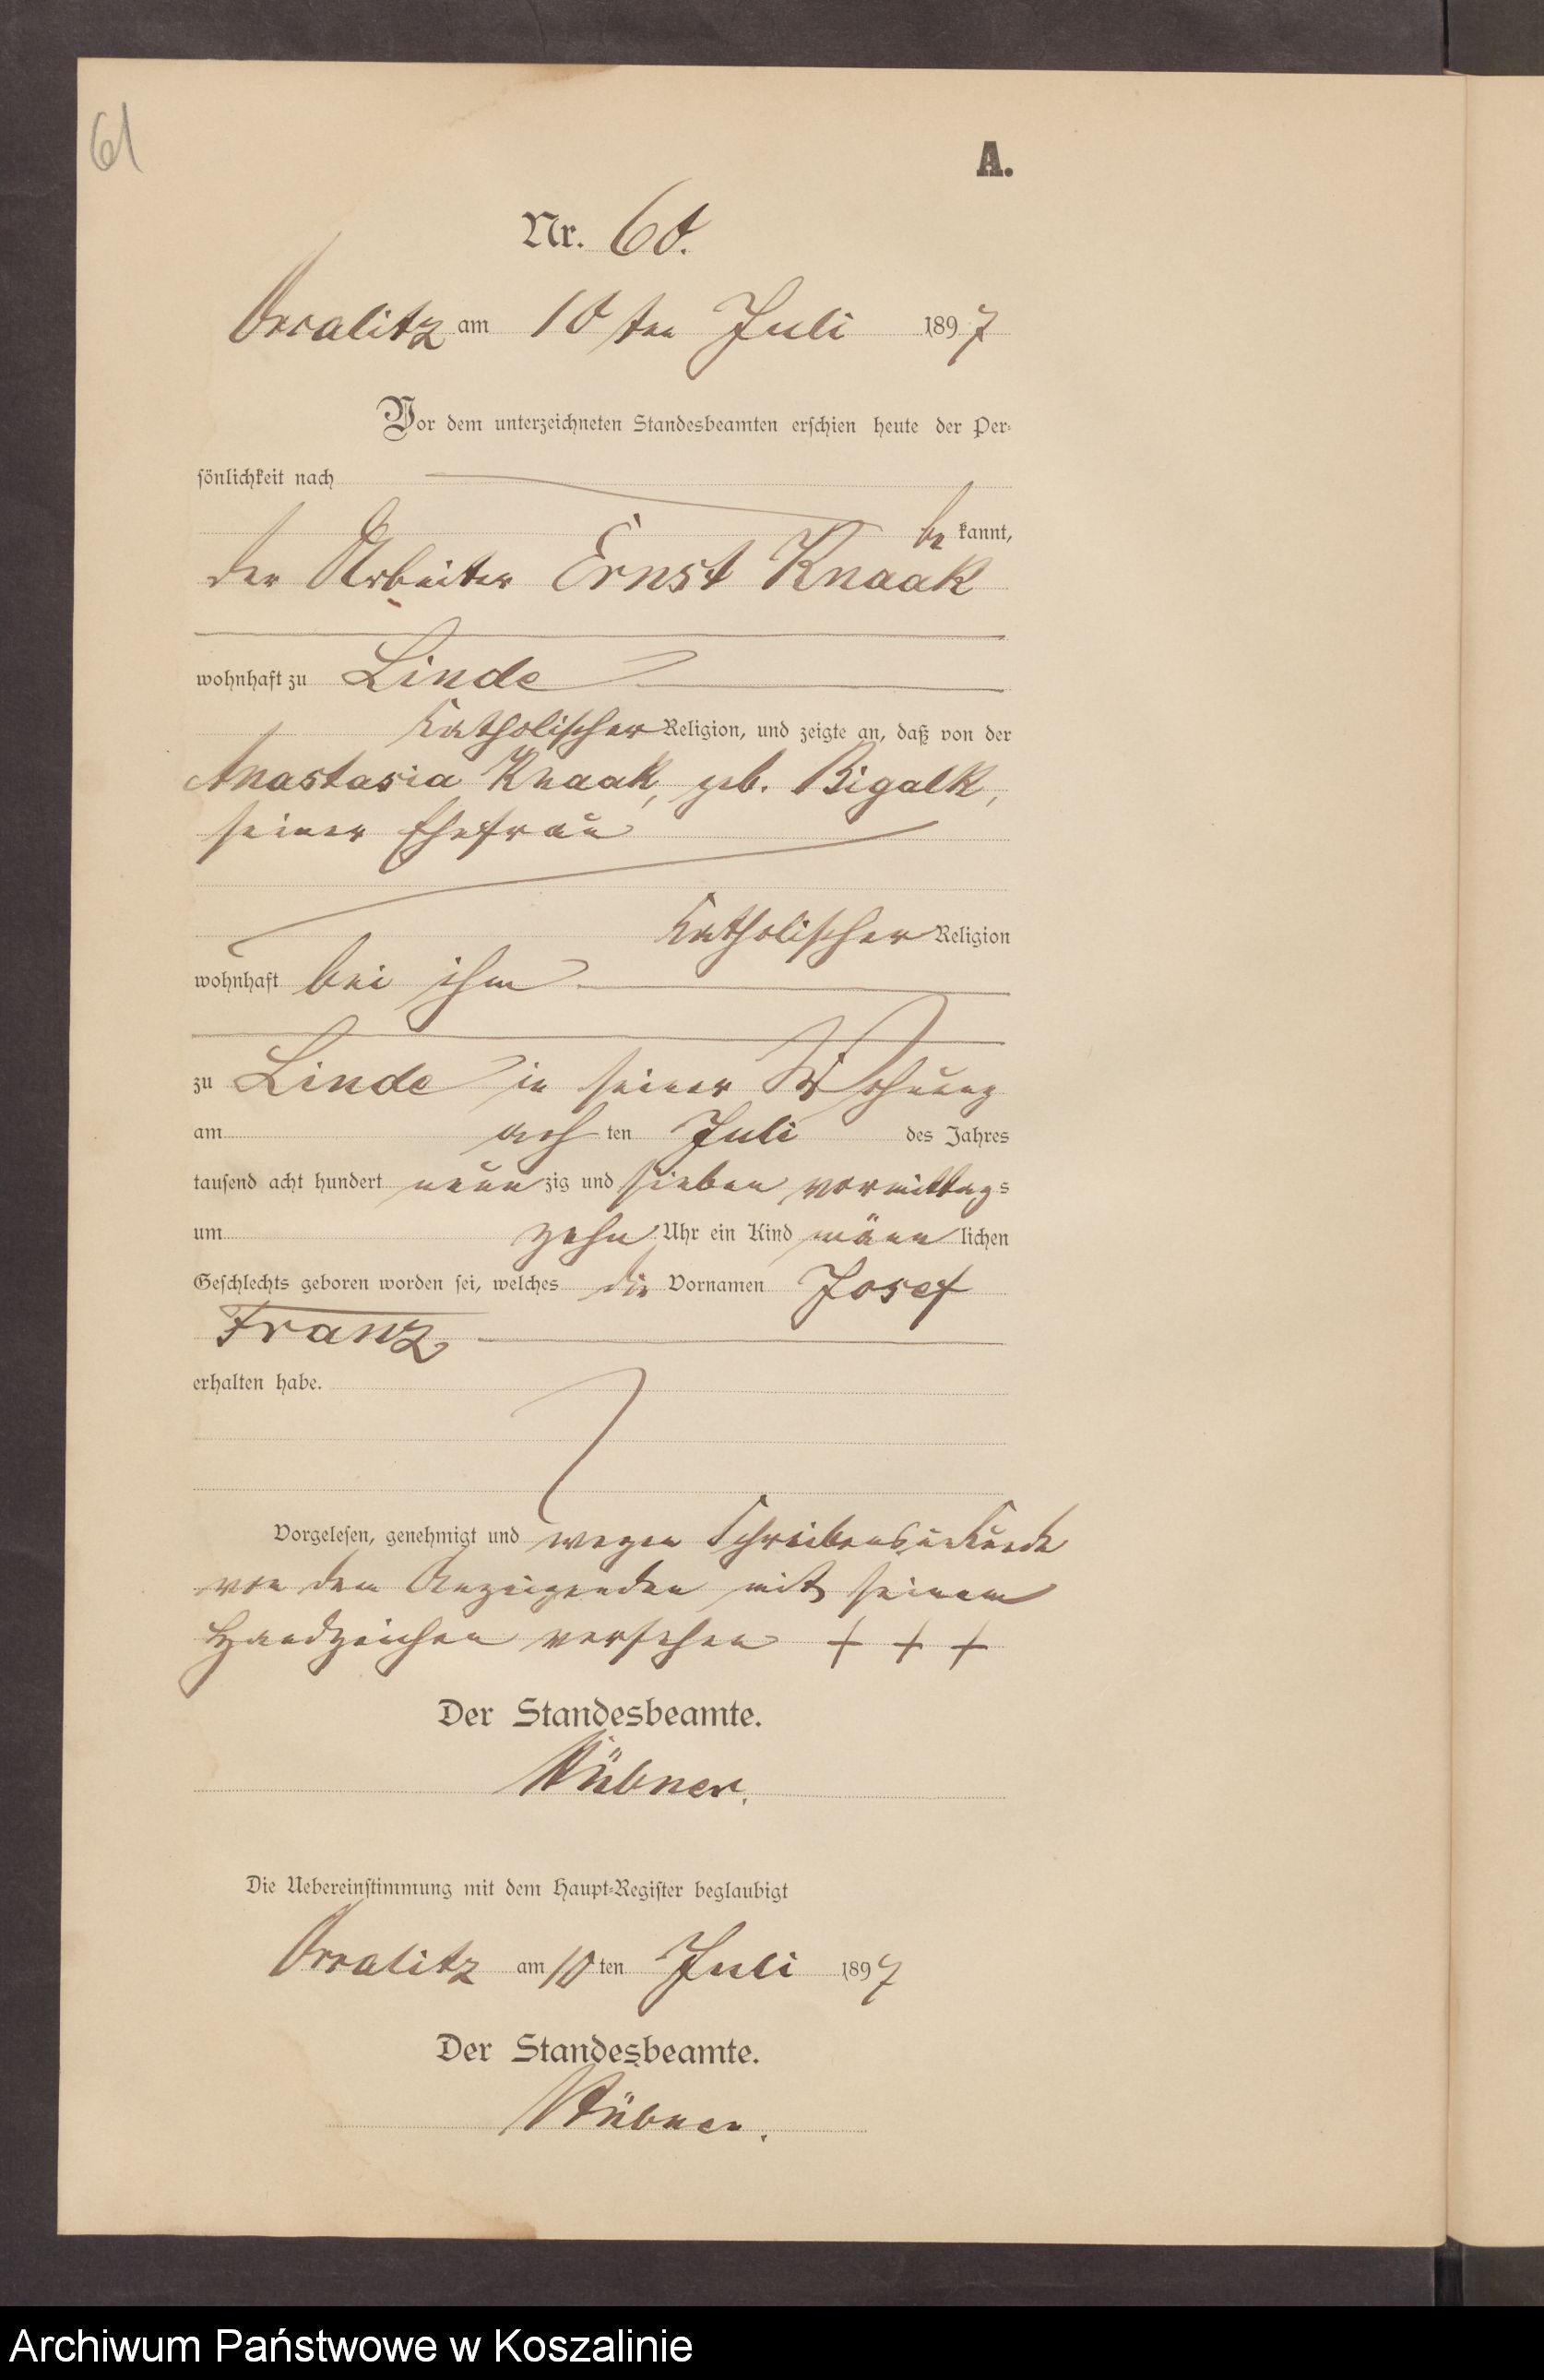 61
A.
Nr. 60.
am 10 ten Juli 1897
Vor dem unterzeichneten Standesbeamten erſchien heute der Per⸗
ſönlichkeit nach
be kannt,
der Arbeiter Ernst Knaak
wohnhaft zu Linde
katholischer Religion, und zeigte an, daß von der
Anastasia Knaak, geb. Bigalk,
seiner Ehefrau
katholischer Religion
wohnhaft bei ihm
zu Linde in seiner Wohnung
am ach ten Juli des Jahres
tauſend acht hundert neun zig und sieben vormittags
um zehn Uhr ein Kind männ lichen
Geſchlechts geboren worden ſei, welches die Vornamen Josef
Franz
erhalten habe.
Vorgeleſen, genehmigt und wegen Schreibensunkunde
von dem Anzeigenden mit seinem
Handzeichen versehen + + +
Der Standesbeamte.
Die Uebereinſtimmung mit dem Haupt⸗Regiſter beglaubigt
am 10 ten Juli 1897
Der Standesbeamte.
Archiwum Państwowe w Koszalinie